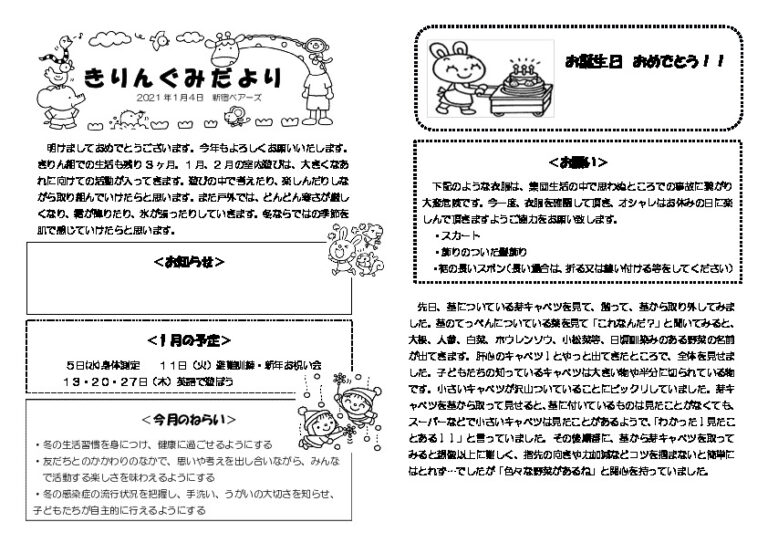 きりんぐみだより
2021年1月4日　新宿ベアーズ
明けましておめでとうございます。今年もよろしくお願いいたします。
きりん組での生活も残り3ヶ月。1月、2月の室内遊びは、大きくなあ
れに向けての活動が入ってきます。遊びの中で考えたり、楽しんだりしな
がら取り組んでいけたらと思います。また戸外では、どんどん寒さが厳し
くなり、霜が降りたり、氷が張ったりしていきます。冬ならではの季節を
肌で感じていけたらと思います。
＜お知らせ＞
＜1月の予定＞
5日(水)身体測定　11日（火）避難訓練・新年お祝い会
13・20・27日（木）英語で遊ぼう
＜今月のねらい＞
・冬の生活習慣を身につけ、健康に過ごせるようにする
・友だちとのかかわりのなかで、思いや考えを出し合いながら、みんな
で活動する楽しさを味わえるようにする
・冬の感染症の流行状況を把握し、手洗い、うがいの大切さを知らせ、
子どもたちが自主的に行えるようにする
お誕生日　おめでとう！！
＜お願い＞
下記のような衣服は、集団生活の中で思わぬところでの事故に繋がり
大変危険です。今一度、衣服を確認して頂き、オシャレはお休みの日に楽
しんで頂きますようご協力をお願い致します。
・スカート
・飾りのついた髪飾り
・裾の長いズボン（長い場合は、折る又は縫い付ける等をしてください）
先日、茎についている芽キャベツを見て、触って、茎から取り外してみま
した。茎のてっぺんについている葉を見て「これなんだ？」と聞いてみると、
大根、人参、白菜、ホウレンソウ、小松菜等、日頃馴染みのある野菜の名前
が出てきます。肝心のキャベツ！とやっと出てきたところで、全体を見せま
した。子どもたちの知っているキャベツは大きい物や半分に切られている物
です。小さいキャベツが沢山ついていることにビックリしていました。芽キ
ャベツを茎から取って見せると、茎に付いているものは見たことがなくても、
スーパーなどで小さいキャベツは見たことがあるようで、「わかった！見たこ
とある！！」と言っていました。その後順番に、茎から芽キャベツを取って
みると想像以上に難しく、指先の向きや力加減などコツを掴まないと簡単に
はとれず…でしたが「色々な野菜があるね」と関心を持っていました。